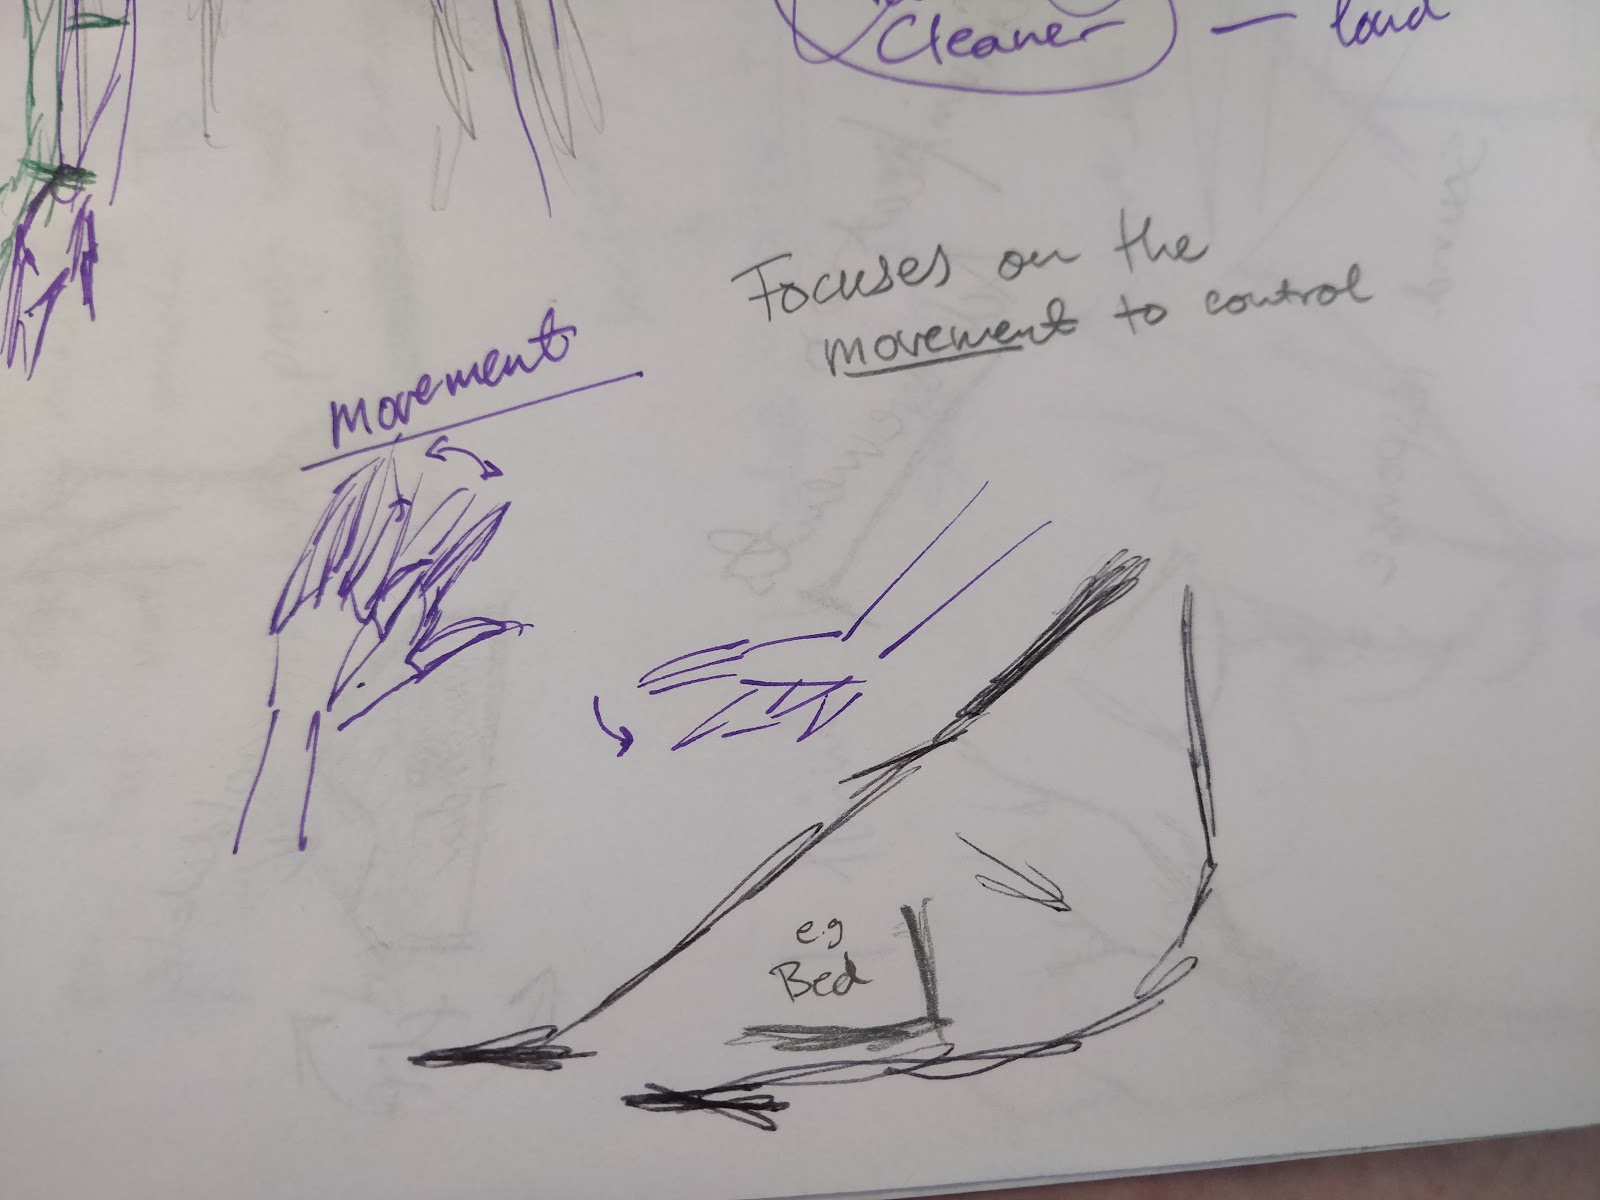 Cleaner — loud
Focuses on the
movement to control
movement
e.g
Bed